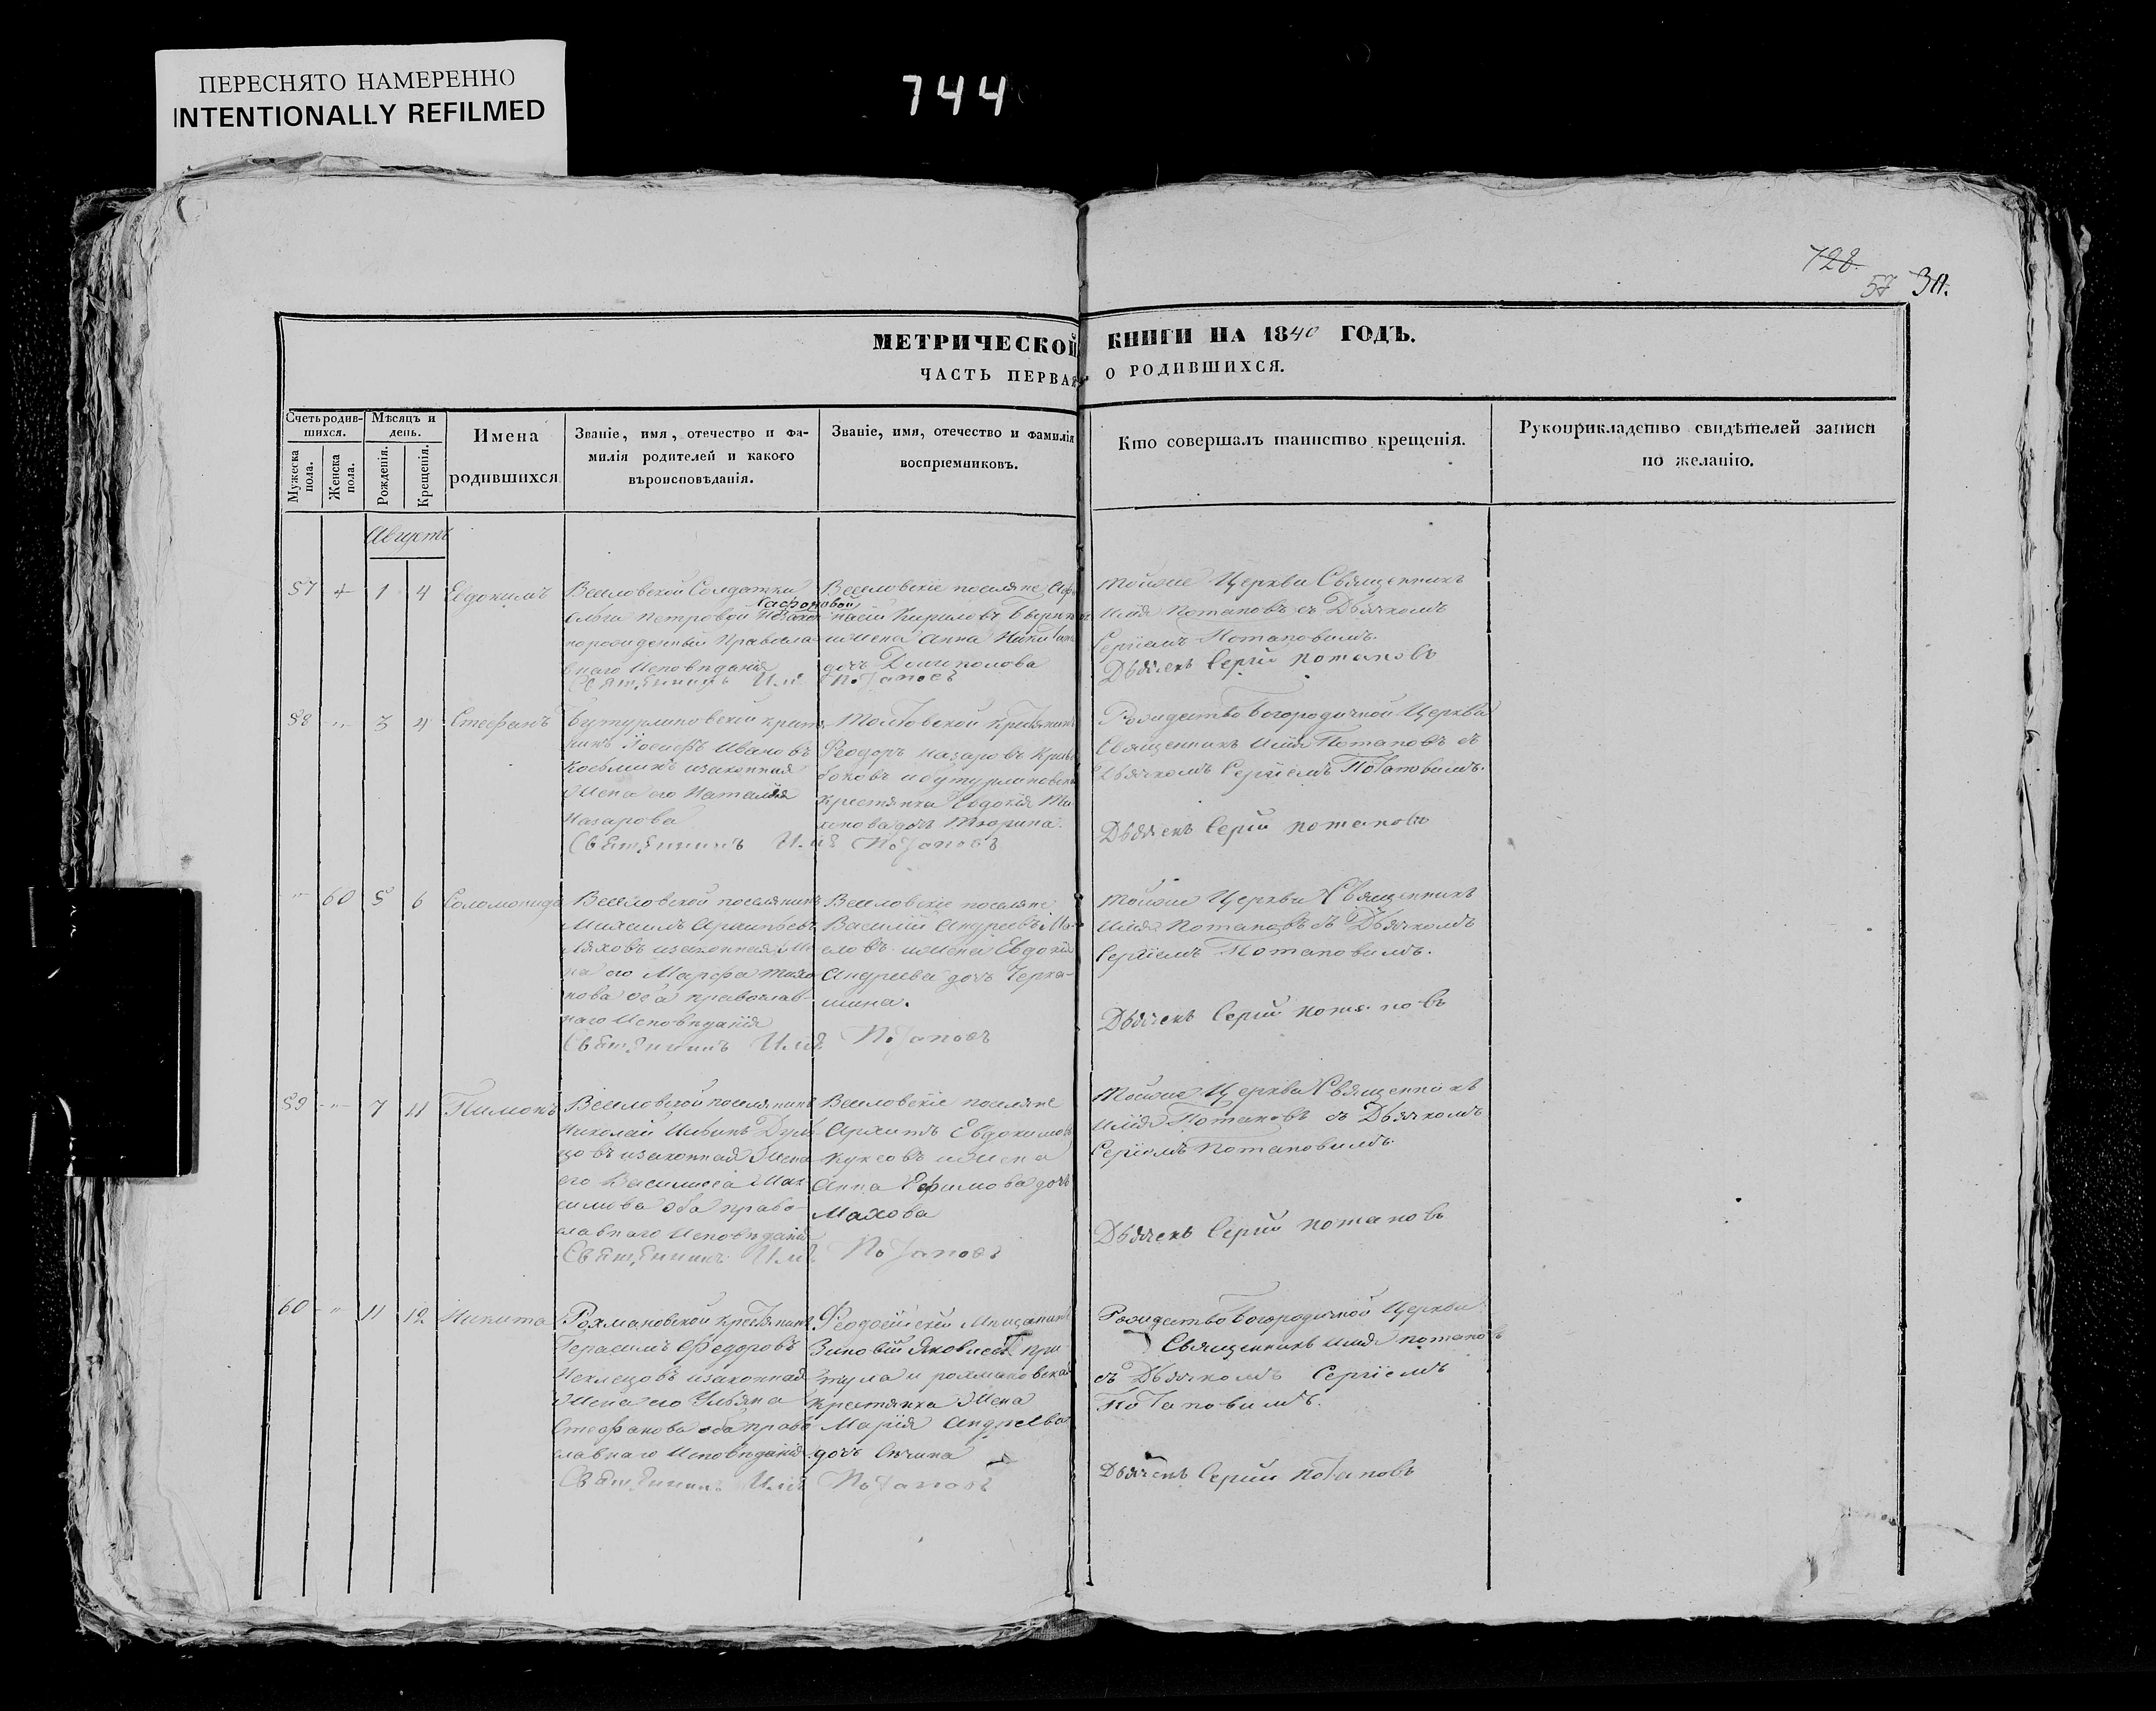 ПЕРЕСНЯТО НАМЕРЕННО
INTENTIONALLY REFILMED
744
728.
57 30.
МЕТРИЧЕСКОЙ КНИГИ НА 1840 ГОДЪ.
ЧАСТЬ ПЕРВАЯ О РОДИВШИХСЯ.
Счетъ родив-
шихся.
Мужеска пола.
Женска пола.
Мѣсяцъ и
день.
Рожденія.
Крещенія.
Имена
родившихся
Званіе, имя, отечество и фа-
милія родителей и какого
вѣроисповѣданія.
Званіе, имя, отечество и фамилія
воспріемниковъ.
Кто совершалъ таинство крещенія.
Рукоприкладство свидѣтелей записи
по желанію.
Августъ
57 1 4 Евдокимъ
Веселовской Солдатки
Сафоновой
Петровой
порожденный Правосла-
внаго Исповѣданія
Священникъ Илія Потаповъ
Веселовскіе поселяне
Кириловъ
и жена Анна
дочь
тойже Церкви Священникъ
Илія Потаповъ съ Дьячкомъ
Сергіемъ Потаповымъ.
Дьячекъ Сергій Потаповъ
58 3 4 Стефанъ
Бутурлиновской крестья-
нинъ Іосифъ Ивановъ
Косьминъ и законная
жена его Наталія
Назарова
Священникъ Илія Потаповъ
крестьянинъ
Феодоръ Назаровъ
и бутурлиновская
крестянка Евдокія
дочь Тюрина.
Рождество Богородичной Церкви
Священникъ Илія Потаповъ съ
Дьячкомъ Сергіемъ Потаповымъ.
Дьячекъ Сергій Потаповъ
60 5 6 Соломонида
Веселовской поселянинъ
Михаилъ
Ляховъ и законная же-
на его Марфа
оба православ-
наго Исповѣданія
Священникъ Илія Потаповъ
Веселовскіе поселяне
Василій Андреевъ
и жена Евдокія
Андреева дочь Черка-
шина.
тойже Церкви Священникъ
Илія Потаповъ съ Дьячкомъ
Сергіемъ Потаповымъ.
Дьячекъ Сергій Потаповъ
59 7 11 Пименъ
Веселовской поселянинъ
Николай Ильинъ
и законная жена
его Василиса Мак-
симова оба право-
славнаго Исповѣданія
Священникъ Илія Потаповъ
Веселовскіе поселяне
Архипъ Евдокимовъ
Куксовъ и жена
Анна Ефимова дочь
Махова
тойже Церкви Священникъ
Илія Потаповъ съ Дьячкомъ
Сергіемъ Потаповымъ.
Дьячекъ Сергій Потаповъ
60 11 12 Никита
Рохмановской крестьянинъ
Герасимъ Федоровъ
и законная
жена его Ульяна
Стефанова оба право-
славнаго Исповѣданія
Священникъ Илія Потаповъ
Феодосійскій Мещанинъ
Зиновій Яковлевъ При-
тула и рохмановская
крестянка жена
Марія Андреева
дочь
Рождество Богородичной Церкви
Священникъ Илія Потаповъ
съ Дьячкомъ Сергіемъ
Потаповымъ.
Дьячекъ Сергій Потаповъ